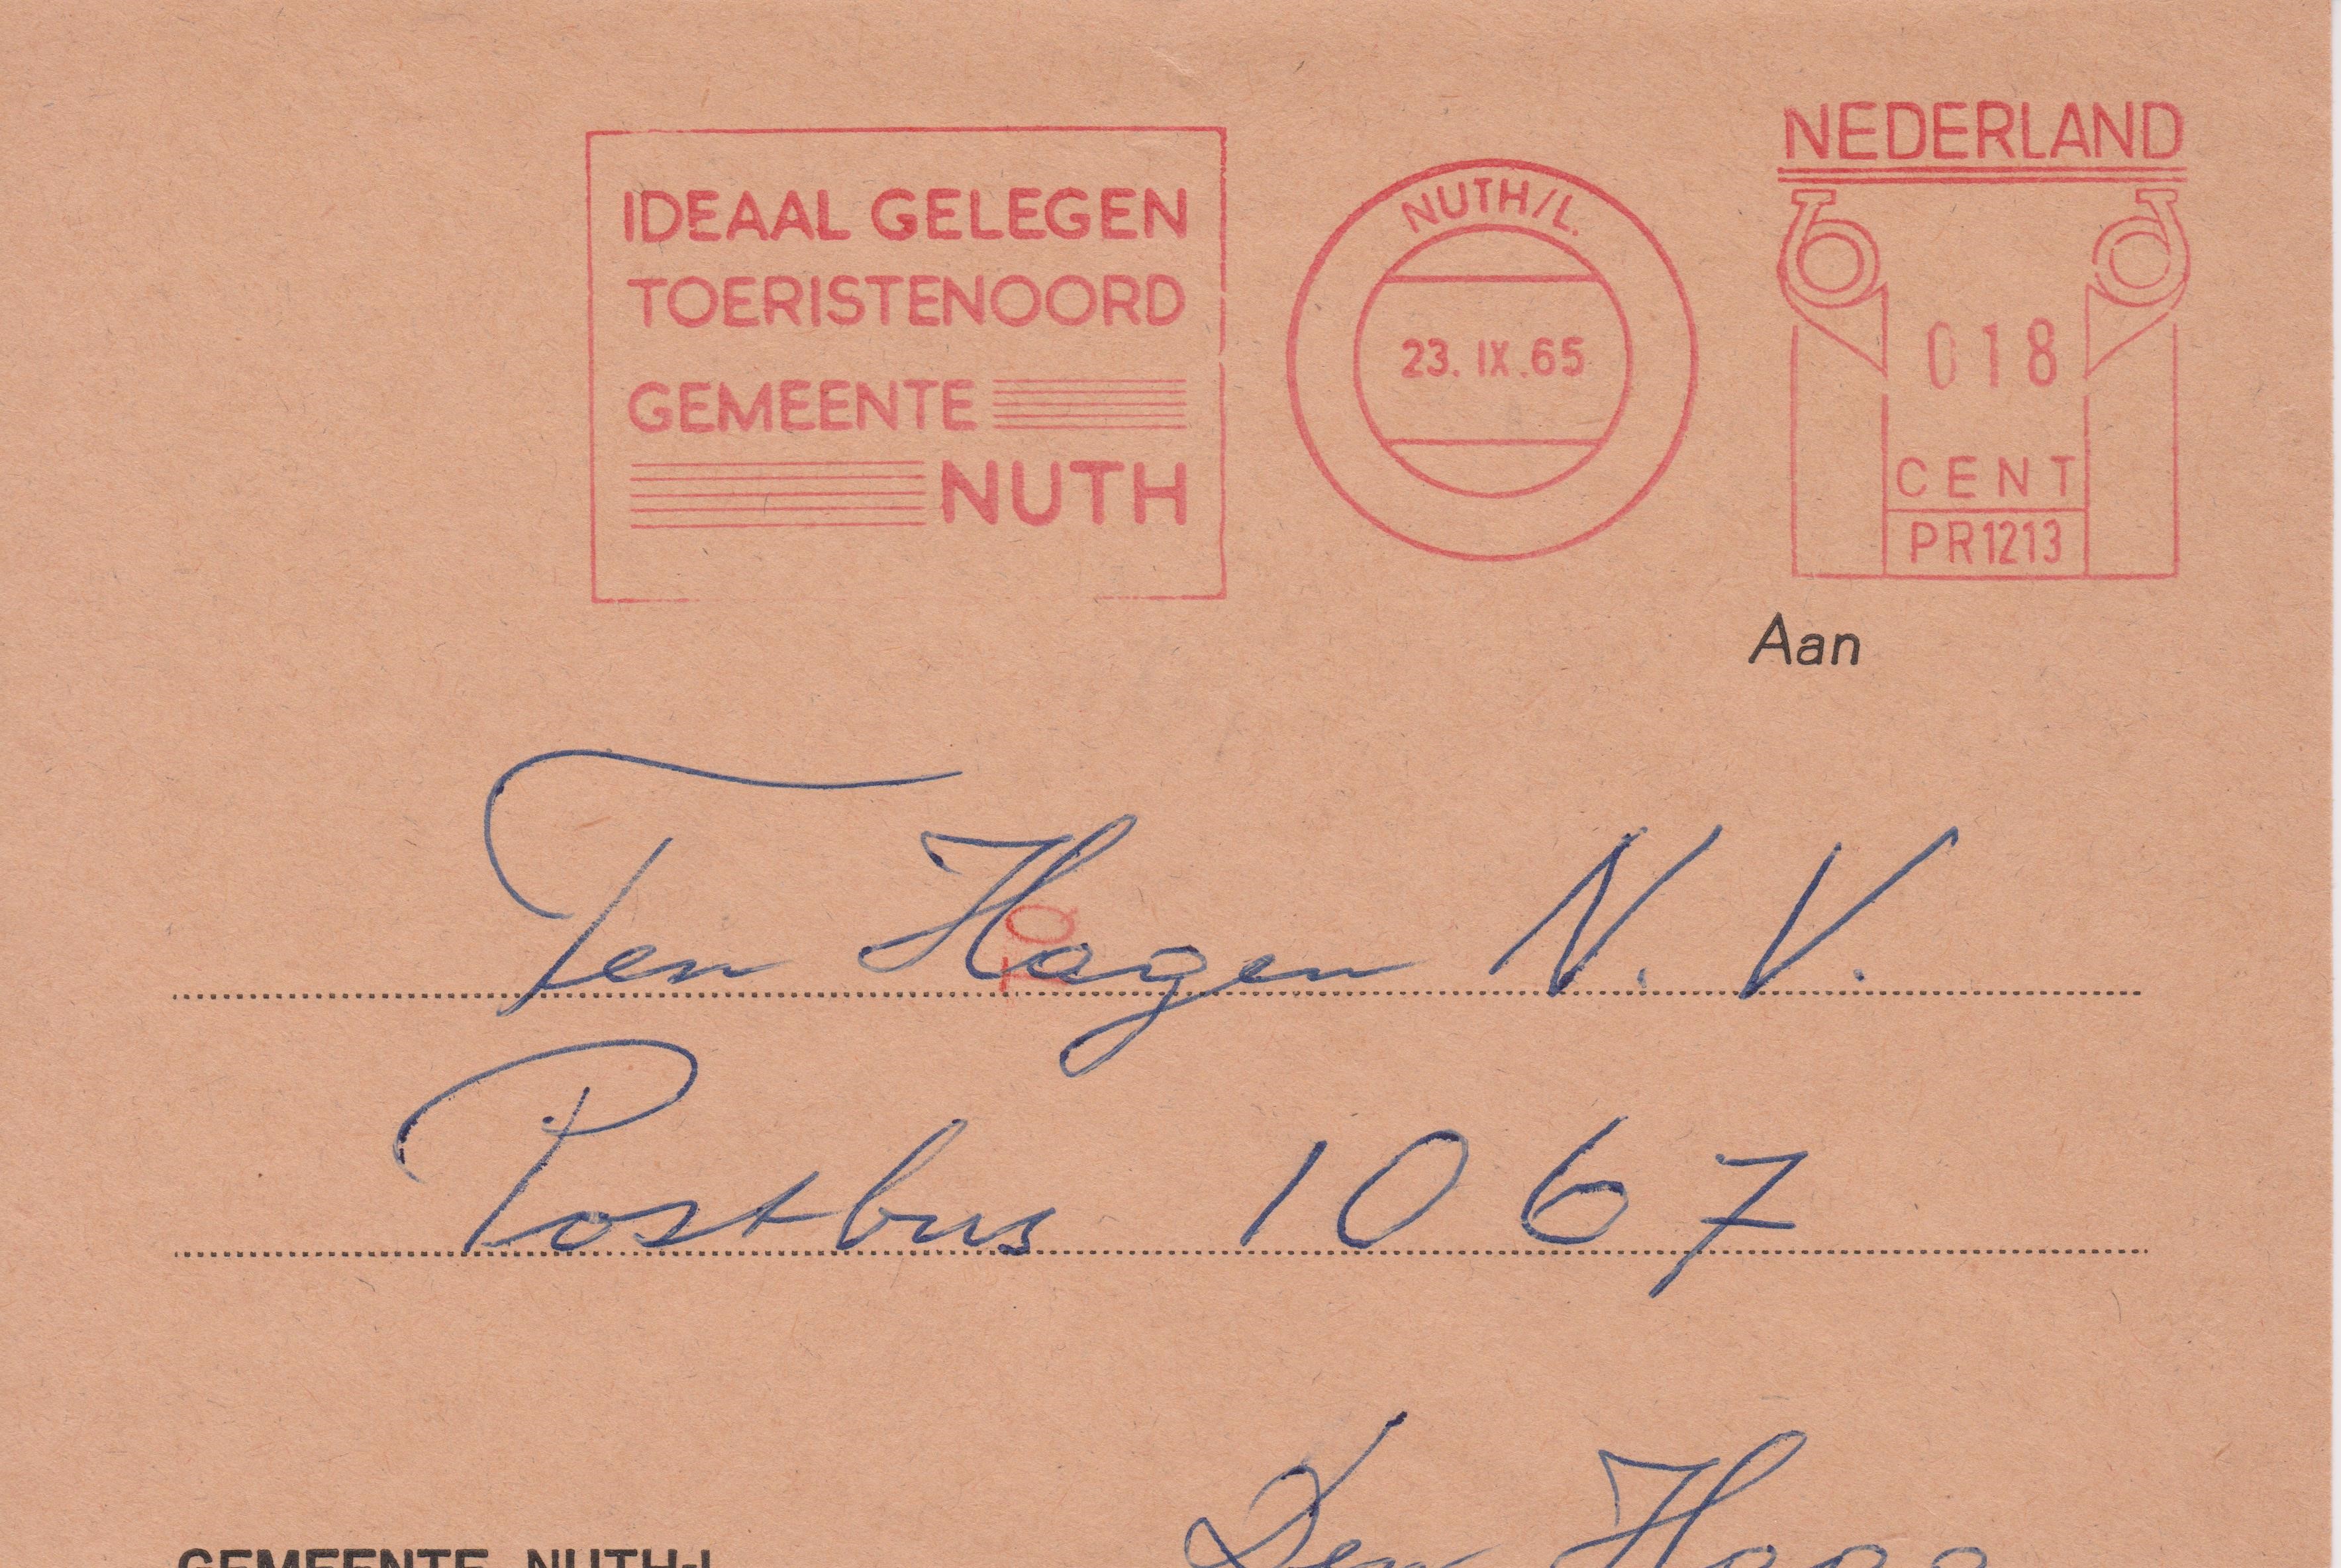 IDEAAL GELEGEN
TOERISTENOORD
GEMEENTE
NUTH
NUTH/L.
23. IX .65
NEDERLAND
018
CENT
PR1213
Aan
Ten Hagen N. V.
Postbus 1067
Den Haag
GEMEENTE NUTH-L